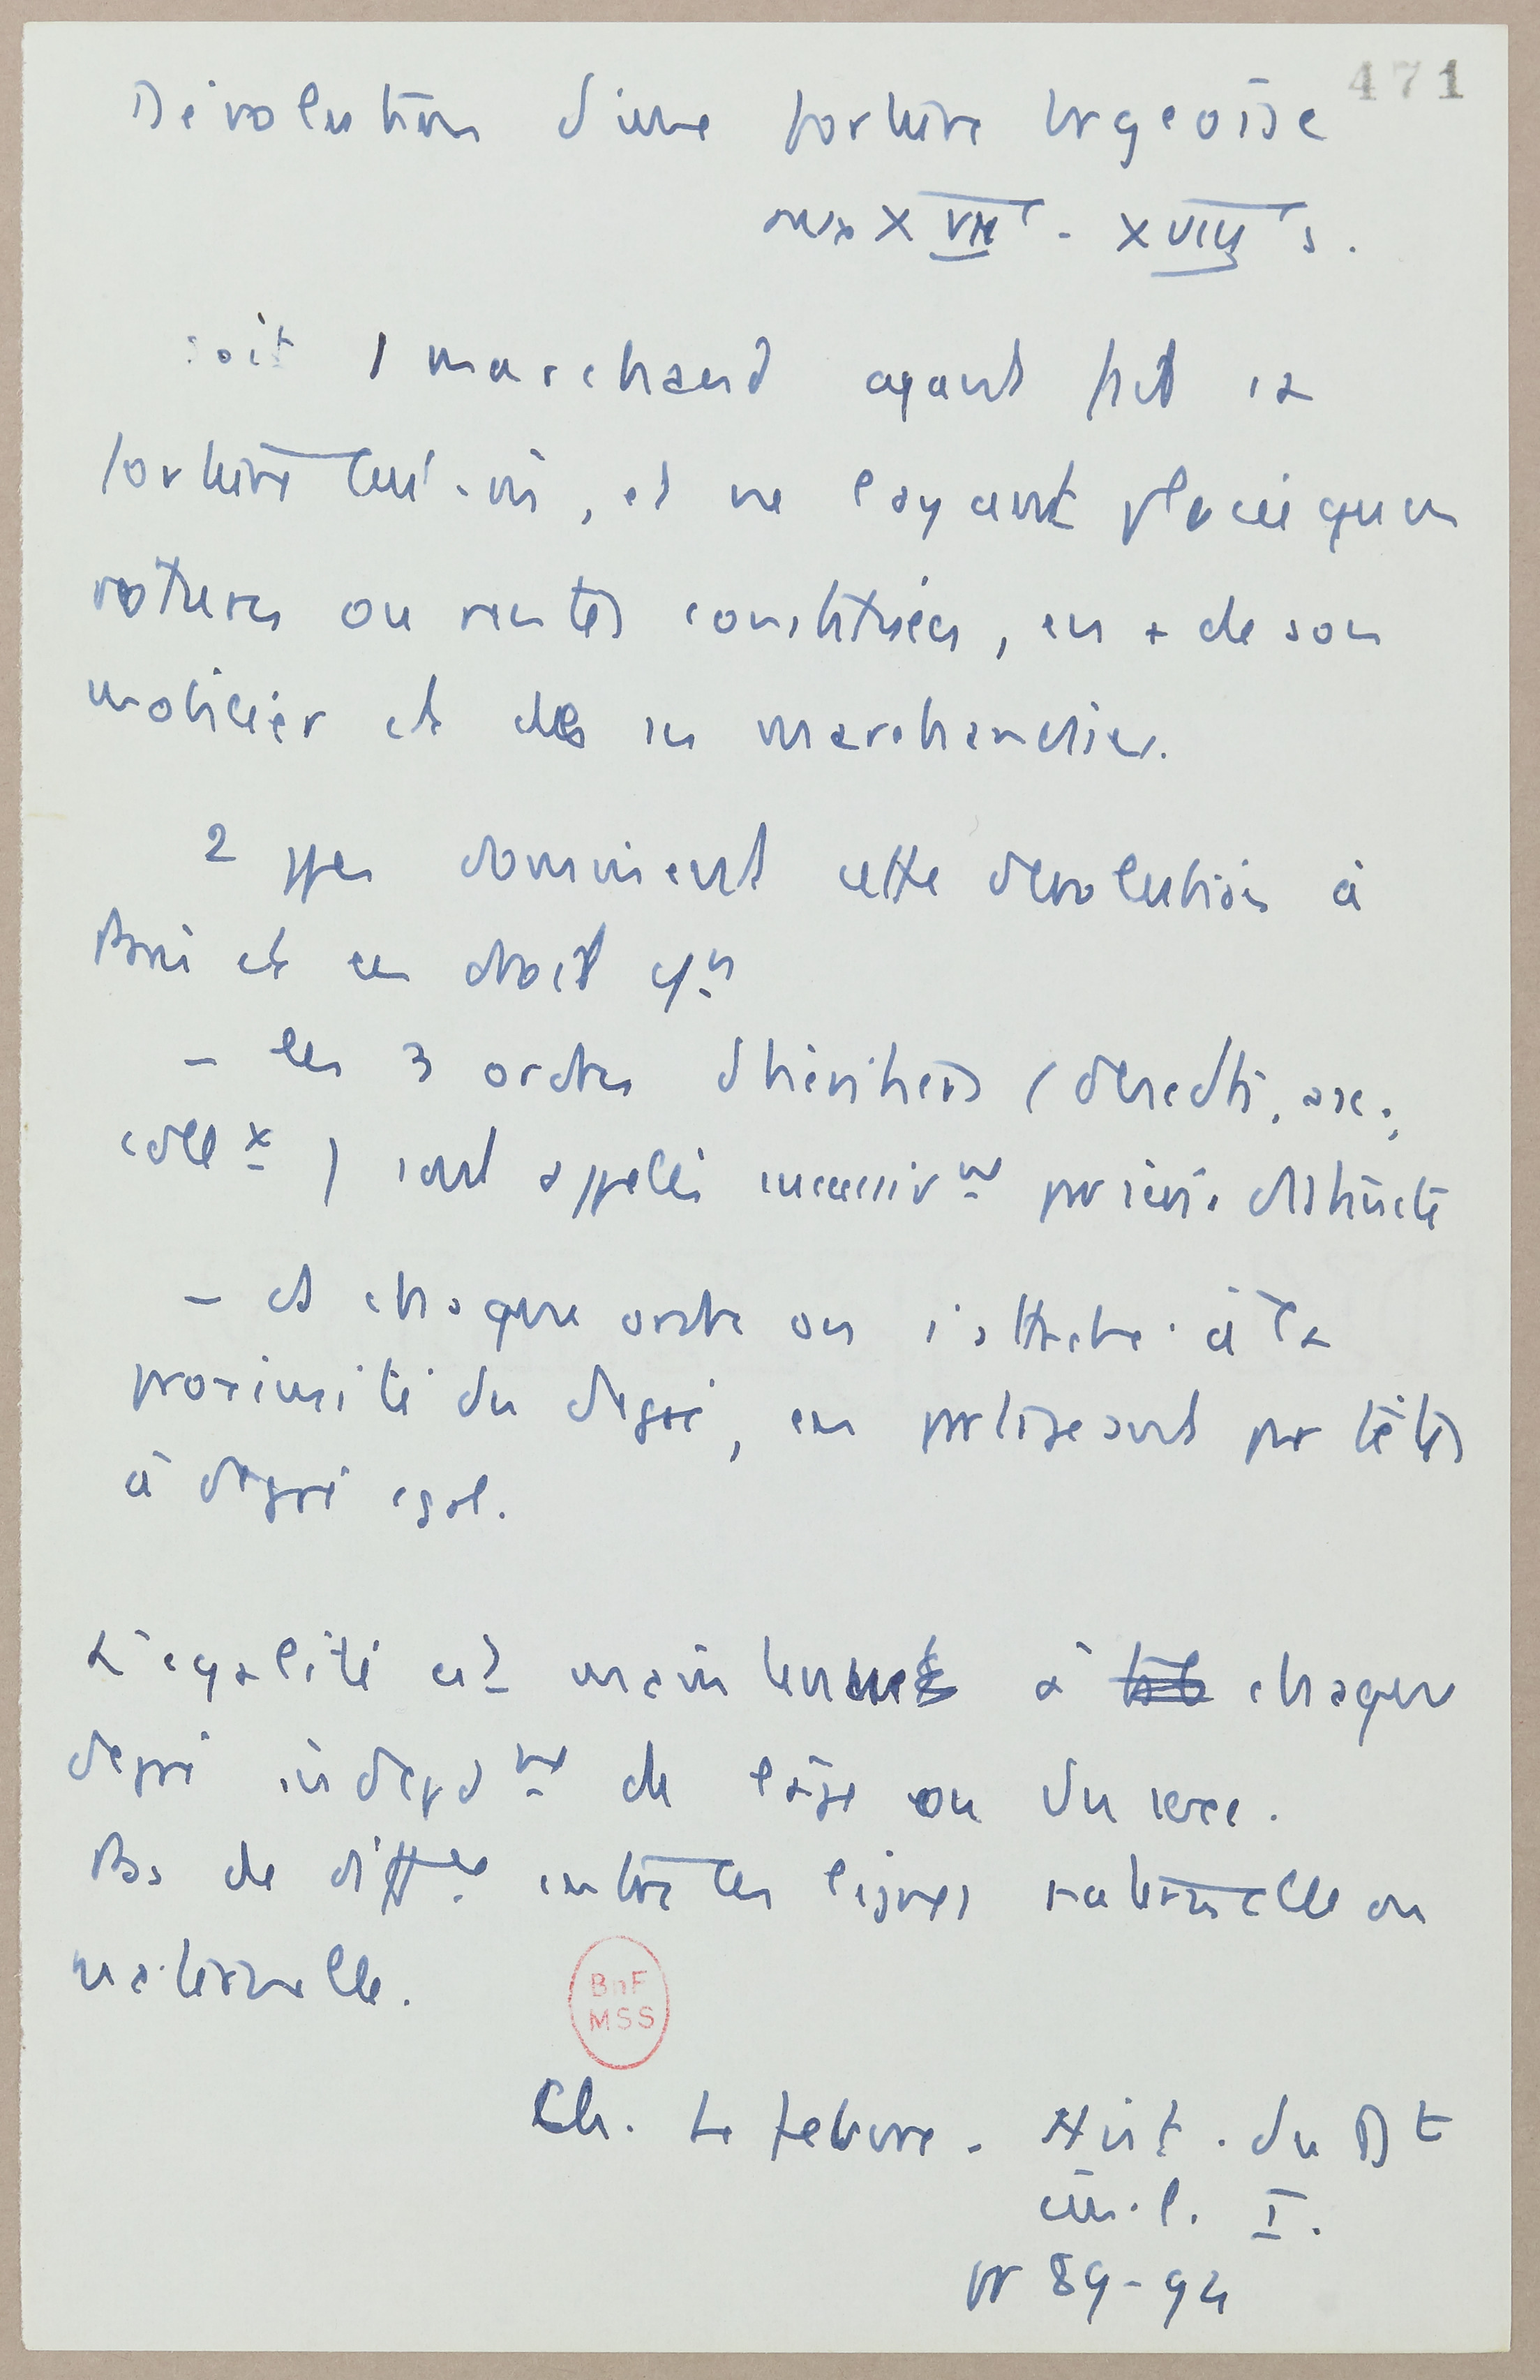 471
Dévolution d'une fortune brgeoise
aux XVIIe - XVIIIe s.
soit 1 marchand ayant fait sa
fortune lui-m, et ne l'ayant placée qu'en
rotures ou rentes constituées, en + de son
mobilier et de ses marchandises.
2 ppes dominent cette dévolution à
Paris et en droit cn
- les 3 ordres d'héritiers (descdts, asc.,
collx) sont appelés successivmt par série distincte
- et chaque ordre on s'attache à la
proximité du degré, en partageant par têtes
à degré égal.
L'égalité est maintenue à chaque
degré indépdmt de l'âge ou du sexe.
Pas de difffce entre les lignes paternelle ou
maternelle.
BnF
MSS
Ch. Lefebvre - Hist. du Dt
civil. I.
pp 89-94